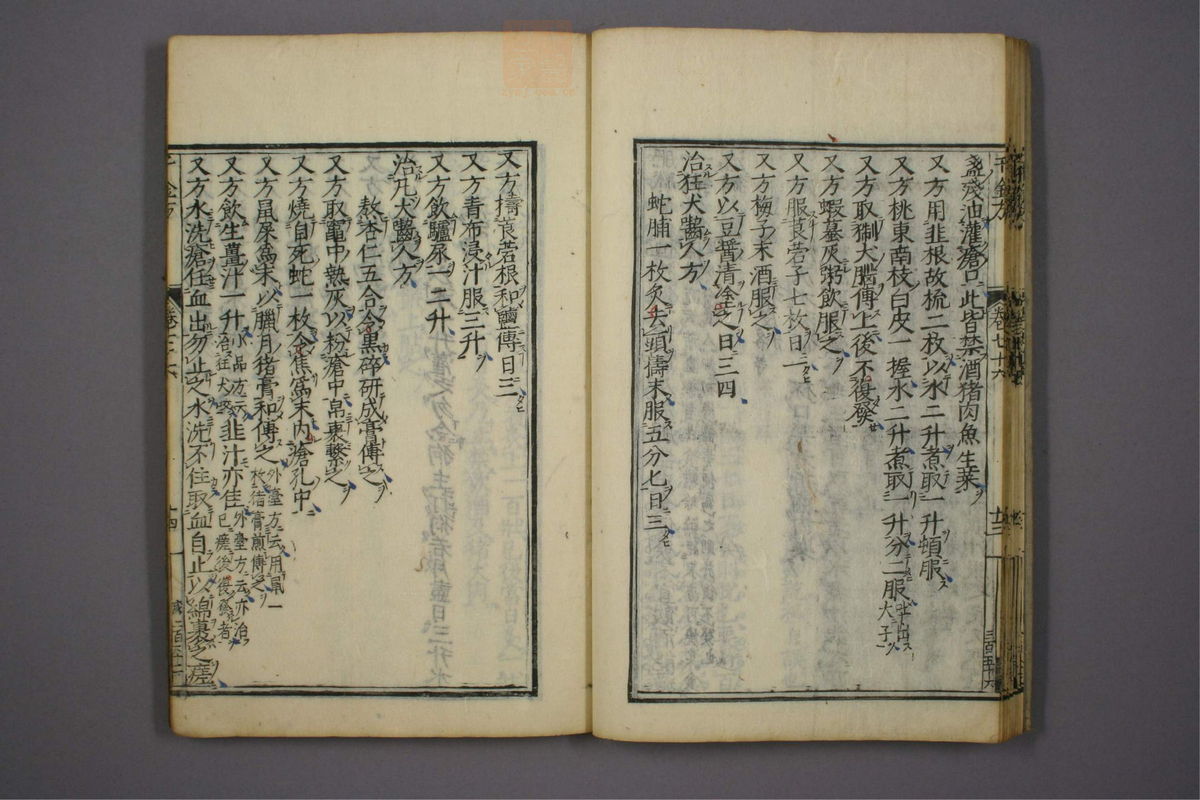 盞殘油灌瘡口此皆禁酒猪肉魚生菜
又方用韭根故梳二枚以水二升煮取一升頓服
又方桃東南枝白皮一握水二升煮取一升分二服吐出犬子
又方取猘犬腦傅上後不復發
又方蝦蟇灰粥飲服之
又方服莨菪子七枚日一
又方梅子末酒服之
又方以豆醬清塗之日三四
治狂犬齧人方
蛇脯一枚炙去頭擣末服五分七日三
又方擣莨菪根和鹽傅日三
又方青布浸汁服三升
又方飲驢尿一二升
治凡犬齧人方
熬杏仁五合令黒碎研成膏傅之
又方取竈中熱灰以粉瘡中帛裹繫之
又方燒自死蛇一枚令焦爲末内瘡孔中
又方鼠屎爲末以臘月猪膏和傅之外臺方云用鼠一枚猪膏煎傅之
又方飲生薑汁一升小品方云治狂犬咬韭汁亦佳外臺方云亦治已瘥後復發者
又方水洗瘡任血出勿止之水洗不住取血自止以綿裹之瘥
千金方
卷七十六
廿三
三百五十六
千金方
卷七十六
廿四